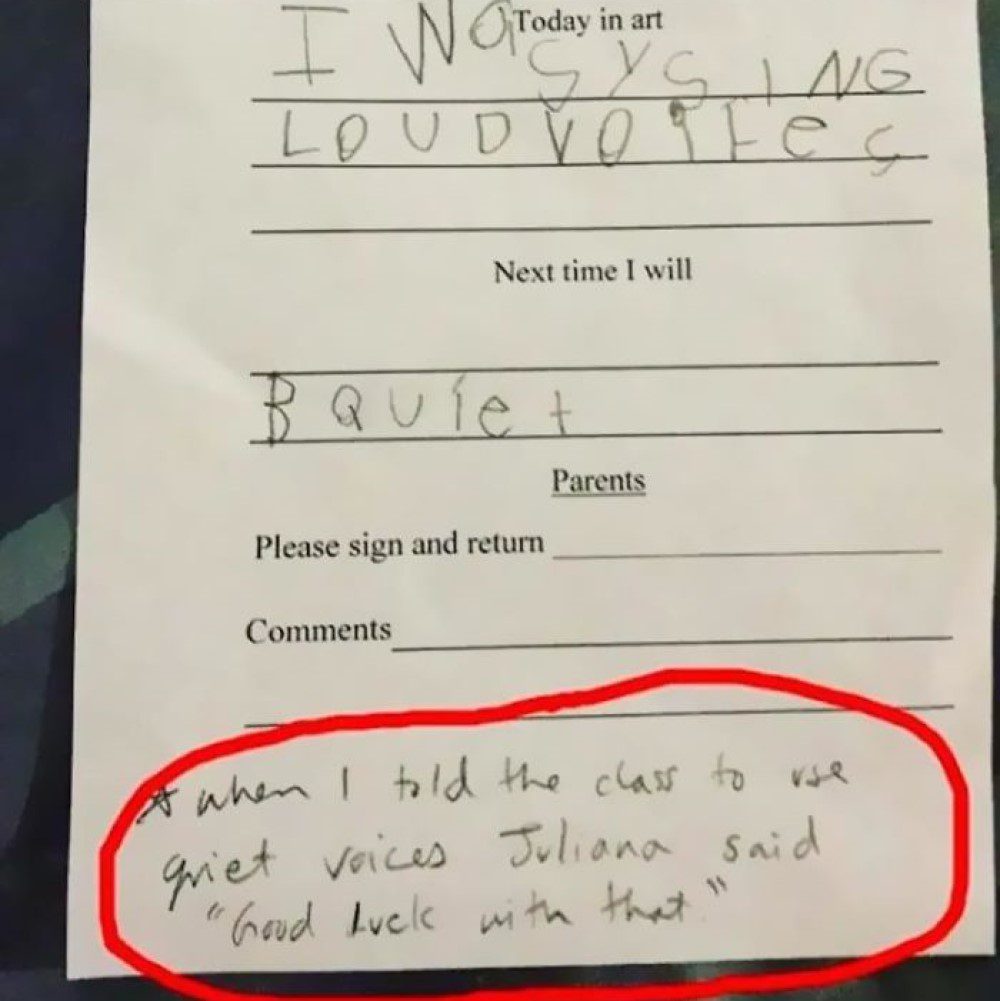 Today in art
I WAS YSING
LOUD VOIFeS
Next time I will
B QUIet
Parents
Please sign and return
Comments
* when I told the class to use
quiet voices Juliana said
"Good Luck with that."